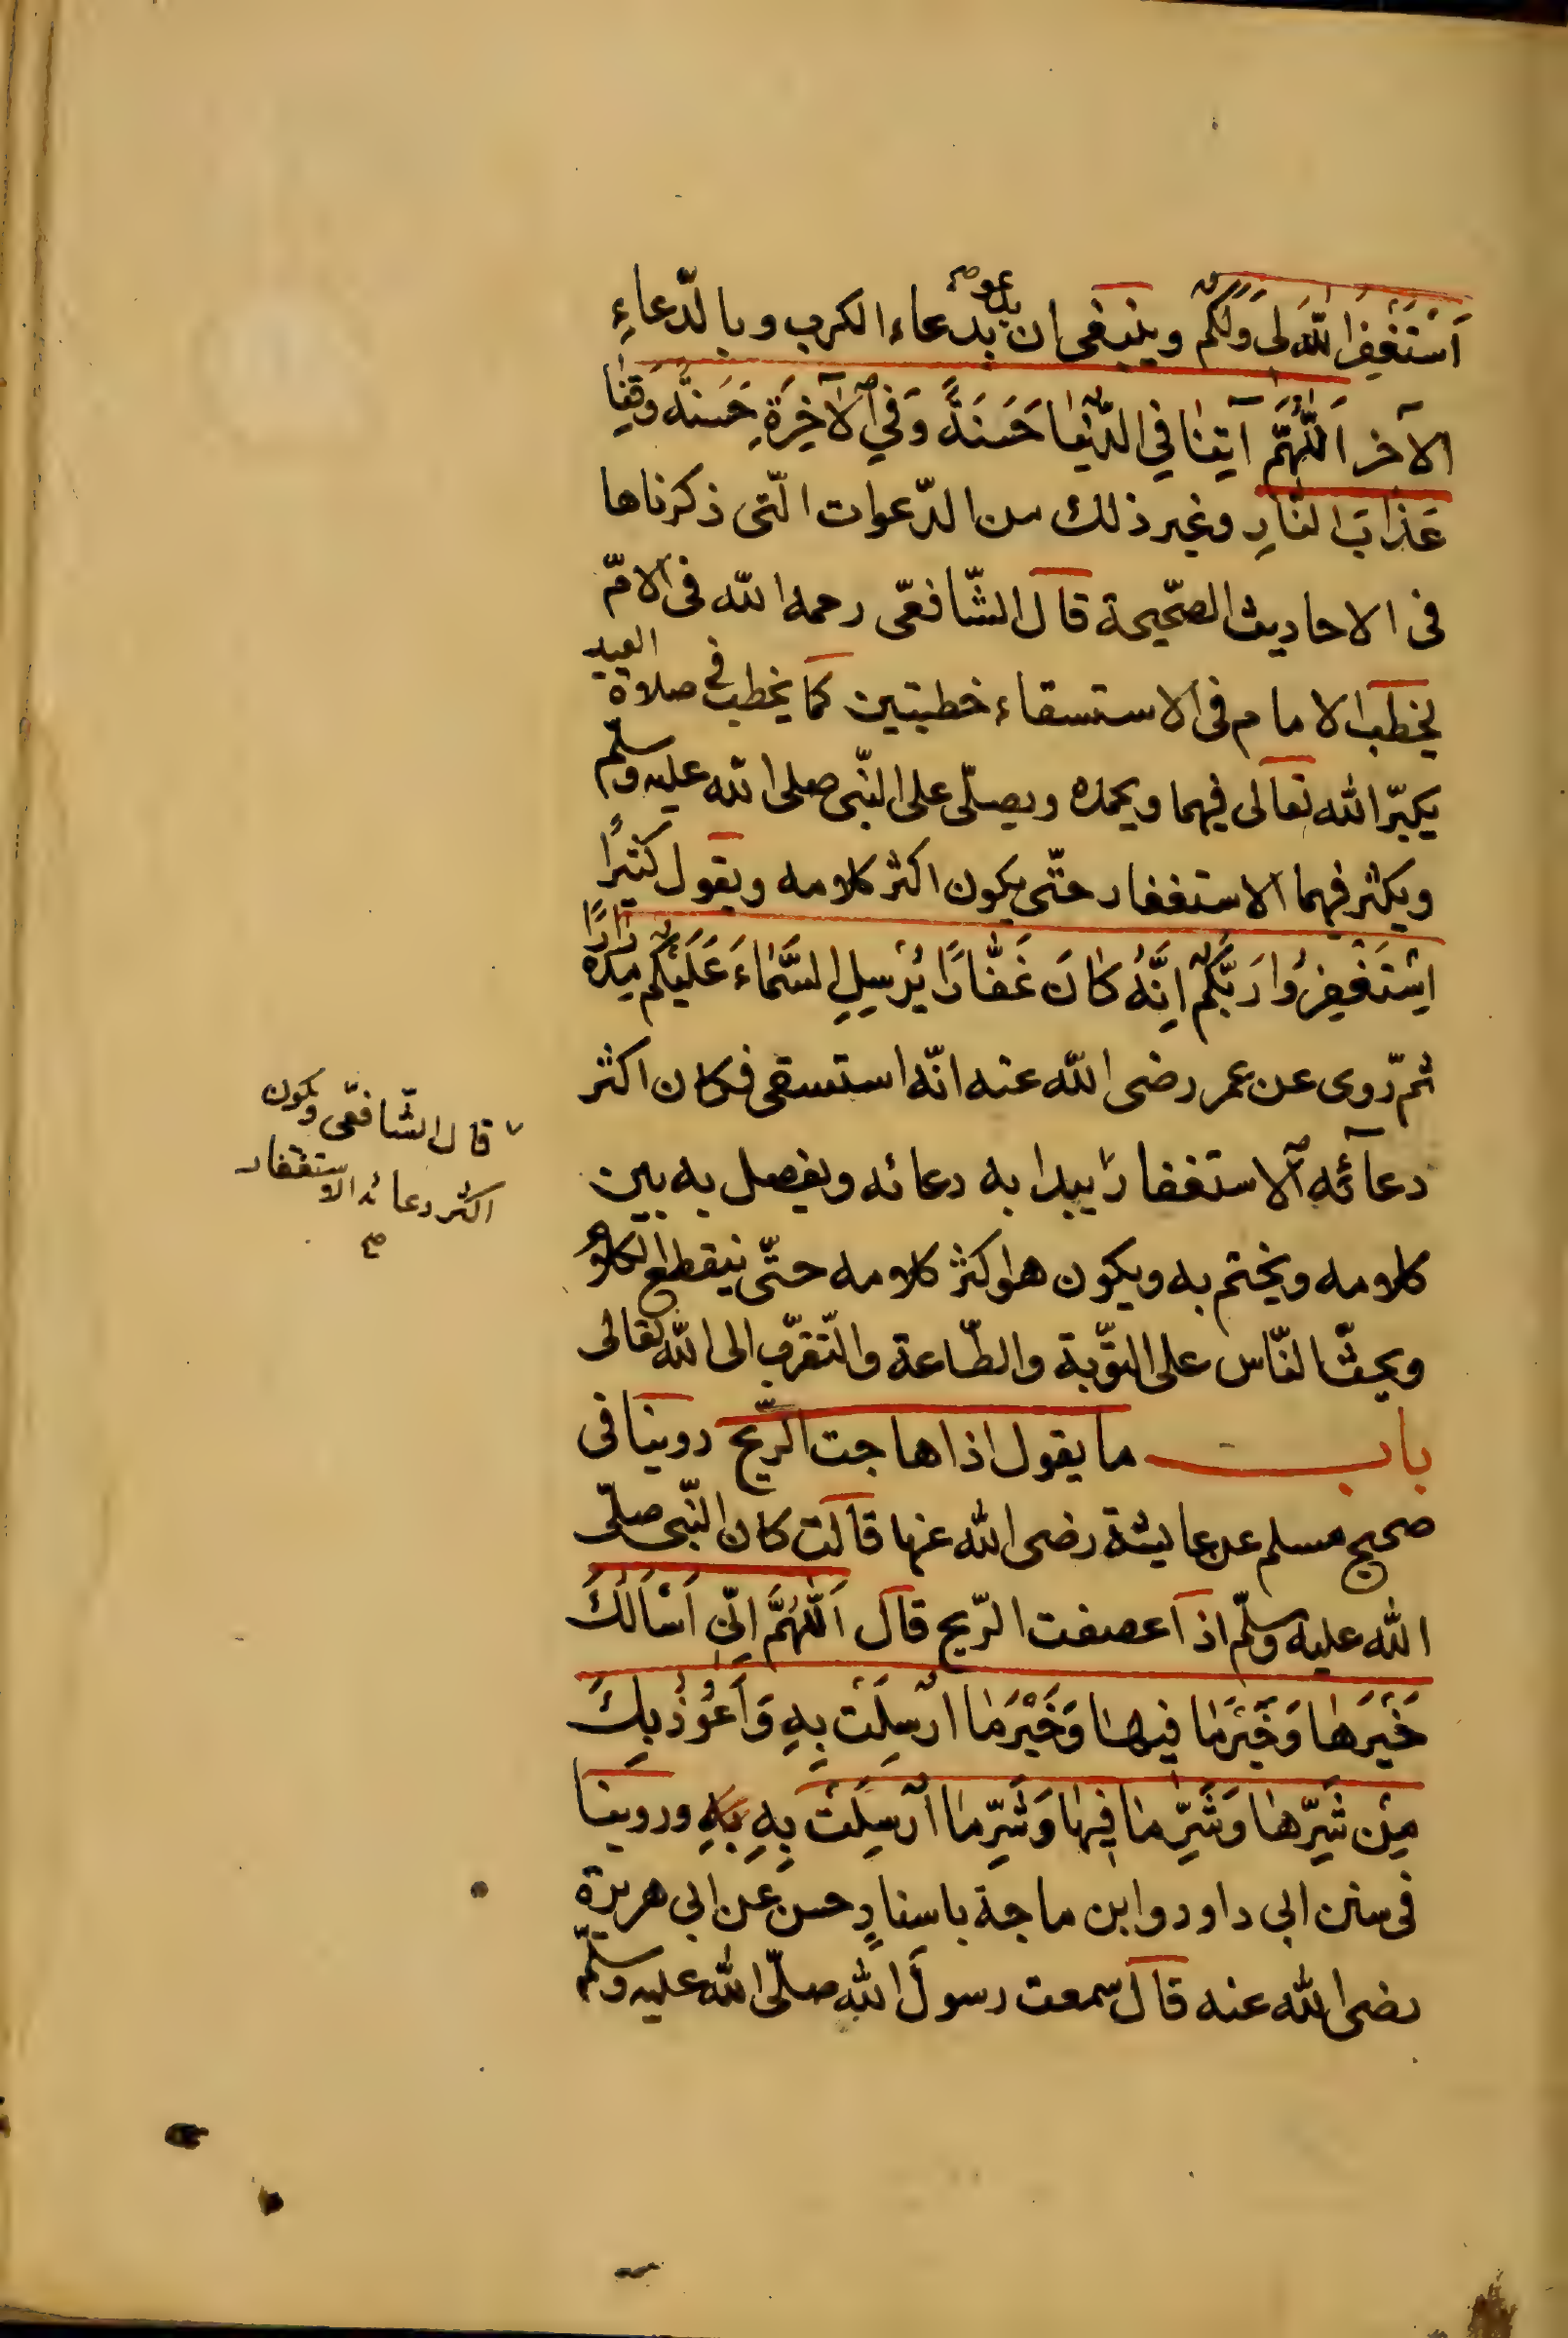 اَسْتَغْفِرُ اللّٰهَ لِى وَلَكُمْ وينبغى ان يدعو بدعاء الكرب وبالدّعاءِ
الآخر اَللّٰهُمَّ آتِنٰا فِي الدُّنْيٰا حَسَنَةً وَفِي الْآخِرَةِ حَسَنَةً وَقِنٰا
عَذٰابَ النّٰارِ وغير ذلك من الدّعوات الّتى ذكرناها
فى الاحاديث الصّحيحة قال الشّافعّى رحمه اللّه فى الامّ
يخطب الامام فى الاستسقاء خطبتين كما يخطب فى صلاة العيد
يكبّر الله تعالى فيهما ويحمده ويصلّى على النّبى صلى اللّه عليه وسلّم
ويكثر فيهما الاستغفار حتّى يكون اكثر كلامه ويقول كثيرًا
اِسْتَغْفِرُوا رَبَّكُمْ اِنَّهُ كٰانَ غَفّٰارًا يُرْسِلِ السَّمٰاءَ عَلَيْكُمْ مِدْرٰارًا
ثمّ روى عن عمر رضى اللّه عنه انّه استسقى فكان اكثر
دعآئه الاستغفار يبدا به دعائه ويفصل به بين
كلامه ويختم به ويكون هو اكثر كلامه حتّى ينقطع الكلام
ويحثّ النّاس على التّوبة والطّاعة والتّقرّب الى اللّه تعالى
باب ما يقول اذا هاجت الرّيح روينا فى
صحيح مسلم عن عايشة رضى الله عنها قالت كان النّبى صلّى
الله عليه وسلّم اذا عصفت الرّيح قال اَللّٰهُمَّ اِنّٖى اَسْاَلُكَ
خَيْرَهٰا وَخَيْرَ مٰا فيهٰا وَخَيْرَ مٰا اُرْسِلَتْ بِهِ وَاَعُوْذُ بِكَ
مِنْ شَرِّهٰا وَشَرِّ مٰا فِيهٰا وَشَرِّ مٰا اُرْسِلَتْ بِهِ بِهِ وروينا
فى سنن ابى داود وابن ماجة باسنادٍ حسن عن ابى هريرة
رضى الله عنه قال سمعت رسولَ الله صلّى الله عليه وسلّم
قال الشّافعّى ويكون
اكثر دعائه الاستغفار
صح